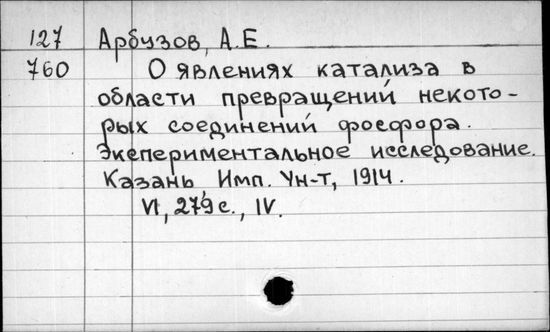 127 Арбузов, А.Е.
760 О явлениях катализа в
области превращений некото-
рых соединений фосфора.
Экспериментальное исследование.
Казань, Имп. Ун-т, 1914.
VI, 279 с., IV.